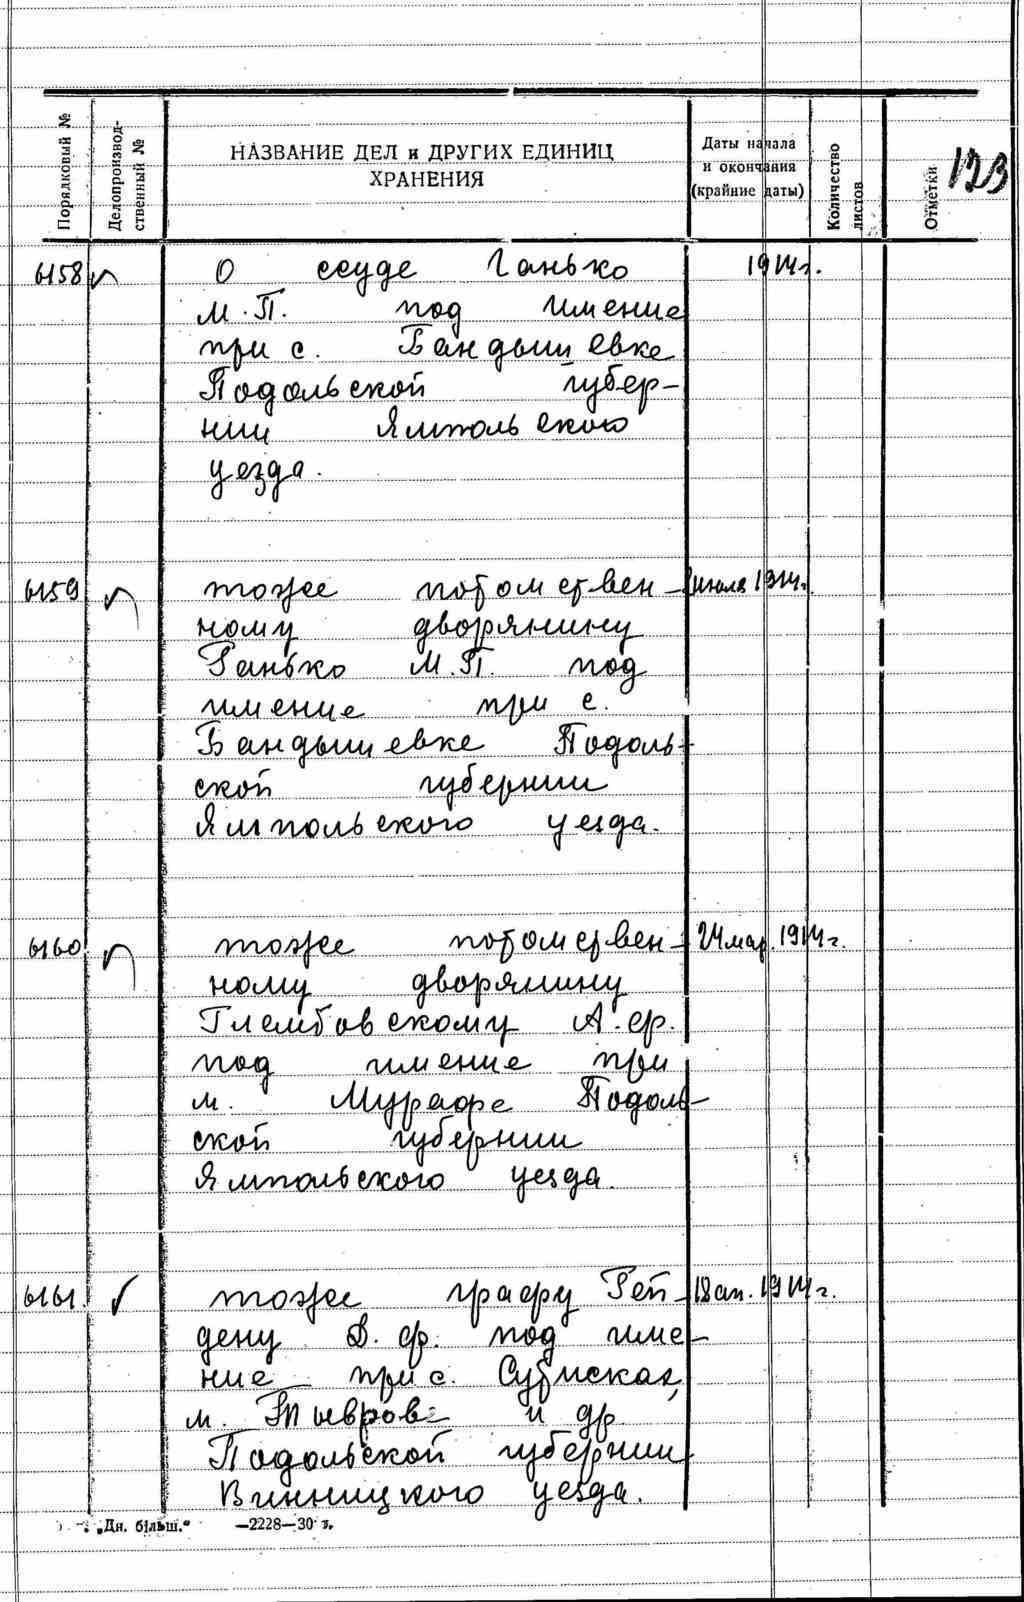 Порядковый №
Делопроизвод-
ственный №
НАЗВАНИЕ ДЕЛ и ДРУГИХ ЕДИНИЦ
ХРАНЕНИЯ
Даты начала
и окончания
(крайние даты)
Количество
листов
Отметки
123
6158 О ссуде Ганько 1914г.
М.П. под имение
при с. Бандышевке
Подольской губер-
нии Ямпольского
уезда.
6159 тоже потомствен- июля 1914г.
ному дворянину
Ганько М.П. под
имение при с.
Бандышевке Подоль-
ской губернии
Ямпольского уезда.
6160 тоже потомствен- 24 мар. 1914г.
ному дворянину
Глембовскому А.Ф.
под имение при
м. Мурафе Подоль-
ской губернии
Ямпольского уезда.
6161. тоже графу Гей- 18 ап. 1914г.
дену Д.Ф. под име-
ние при с.
м. Тывров и др.
Подольской губернии
Винницкого уезда.
„Дн. більш.“ —2228—30 т.